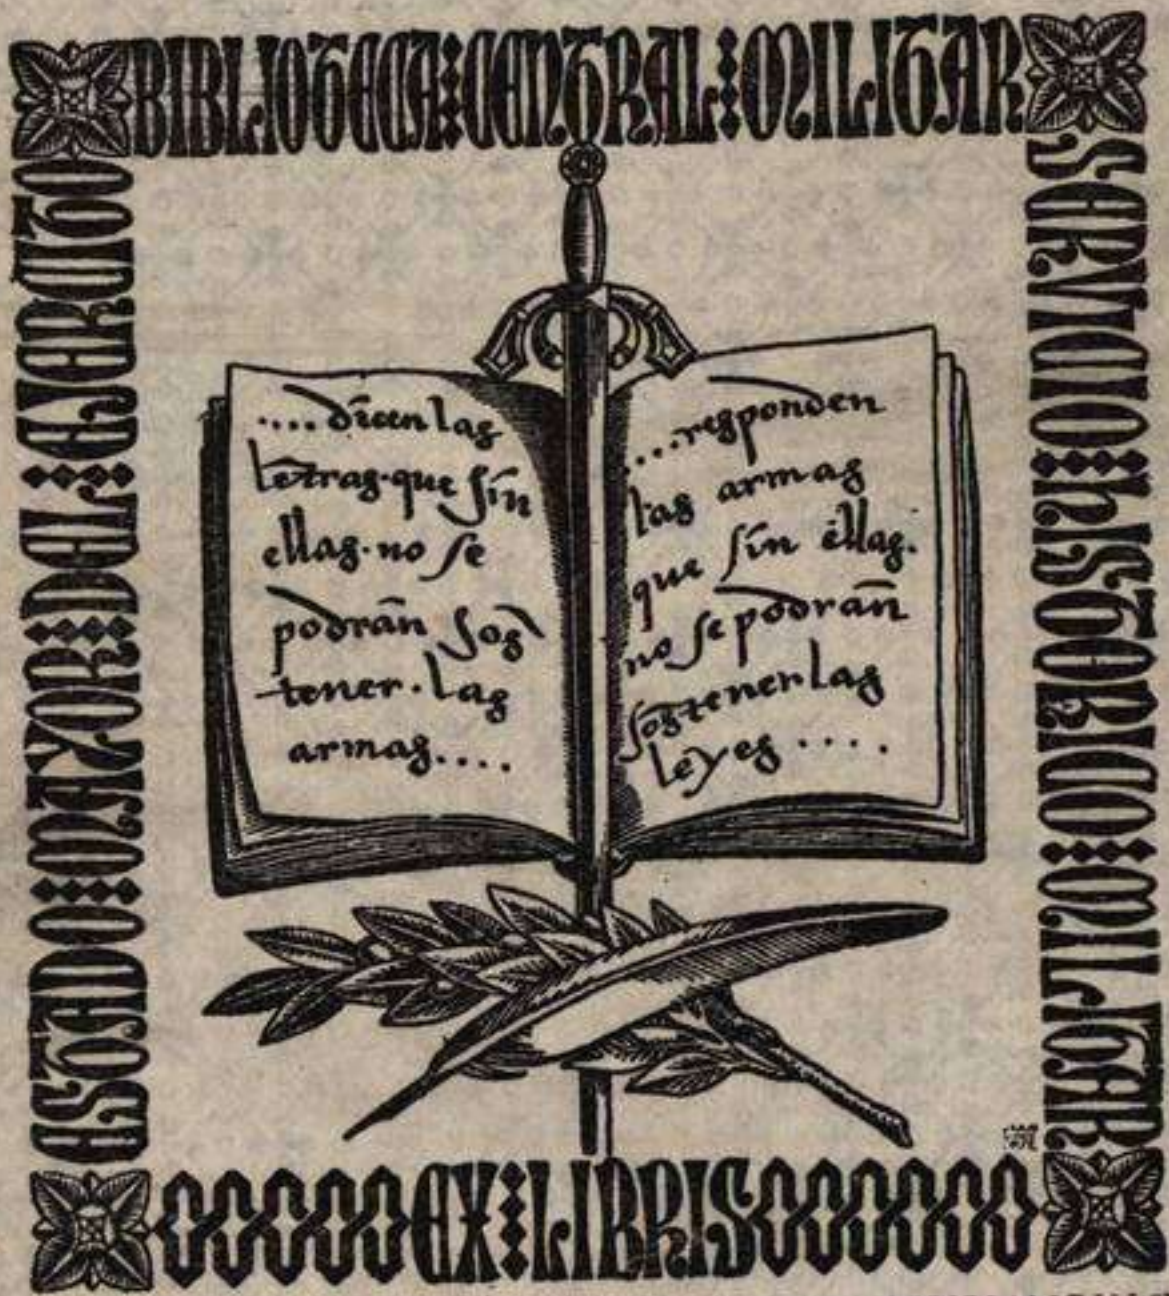 BIBLIOTECA CENTRAL MILITAR
SERVICIO HISTORICO MILITAR
ESTADO MAYOR DEL EJERCITO
....dicen las
letras·que sin
ellas·no se
podrān sos
tener·las
armas....
....responden
las armas
que sin ellas·
no se podrān
sostener las
leyes ....
EX LIBRIS